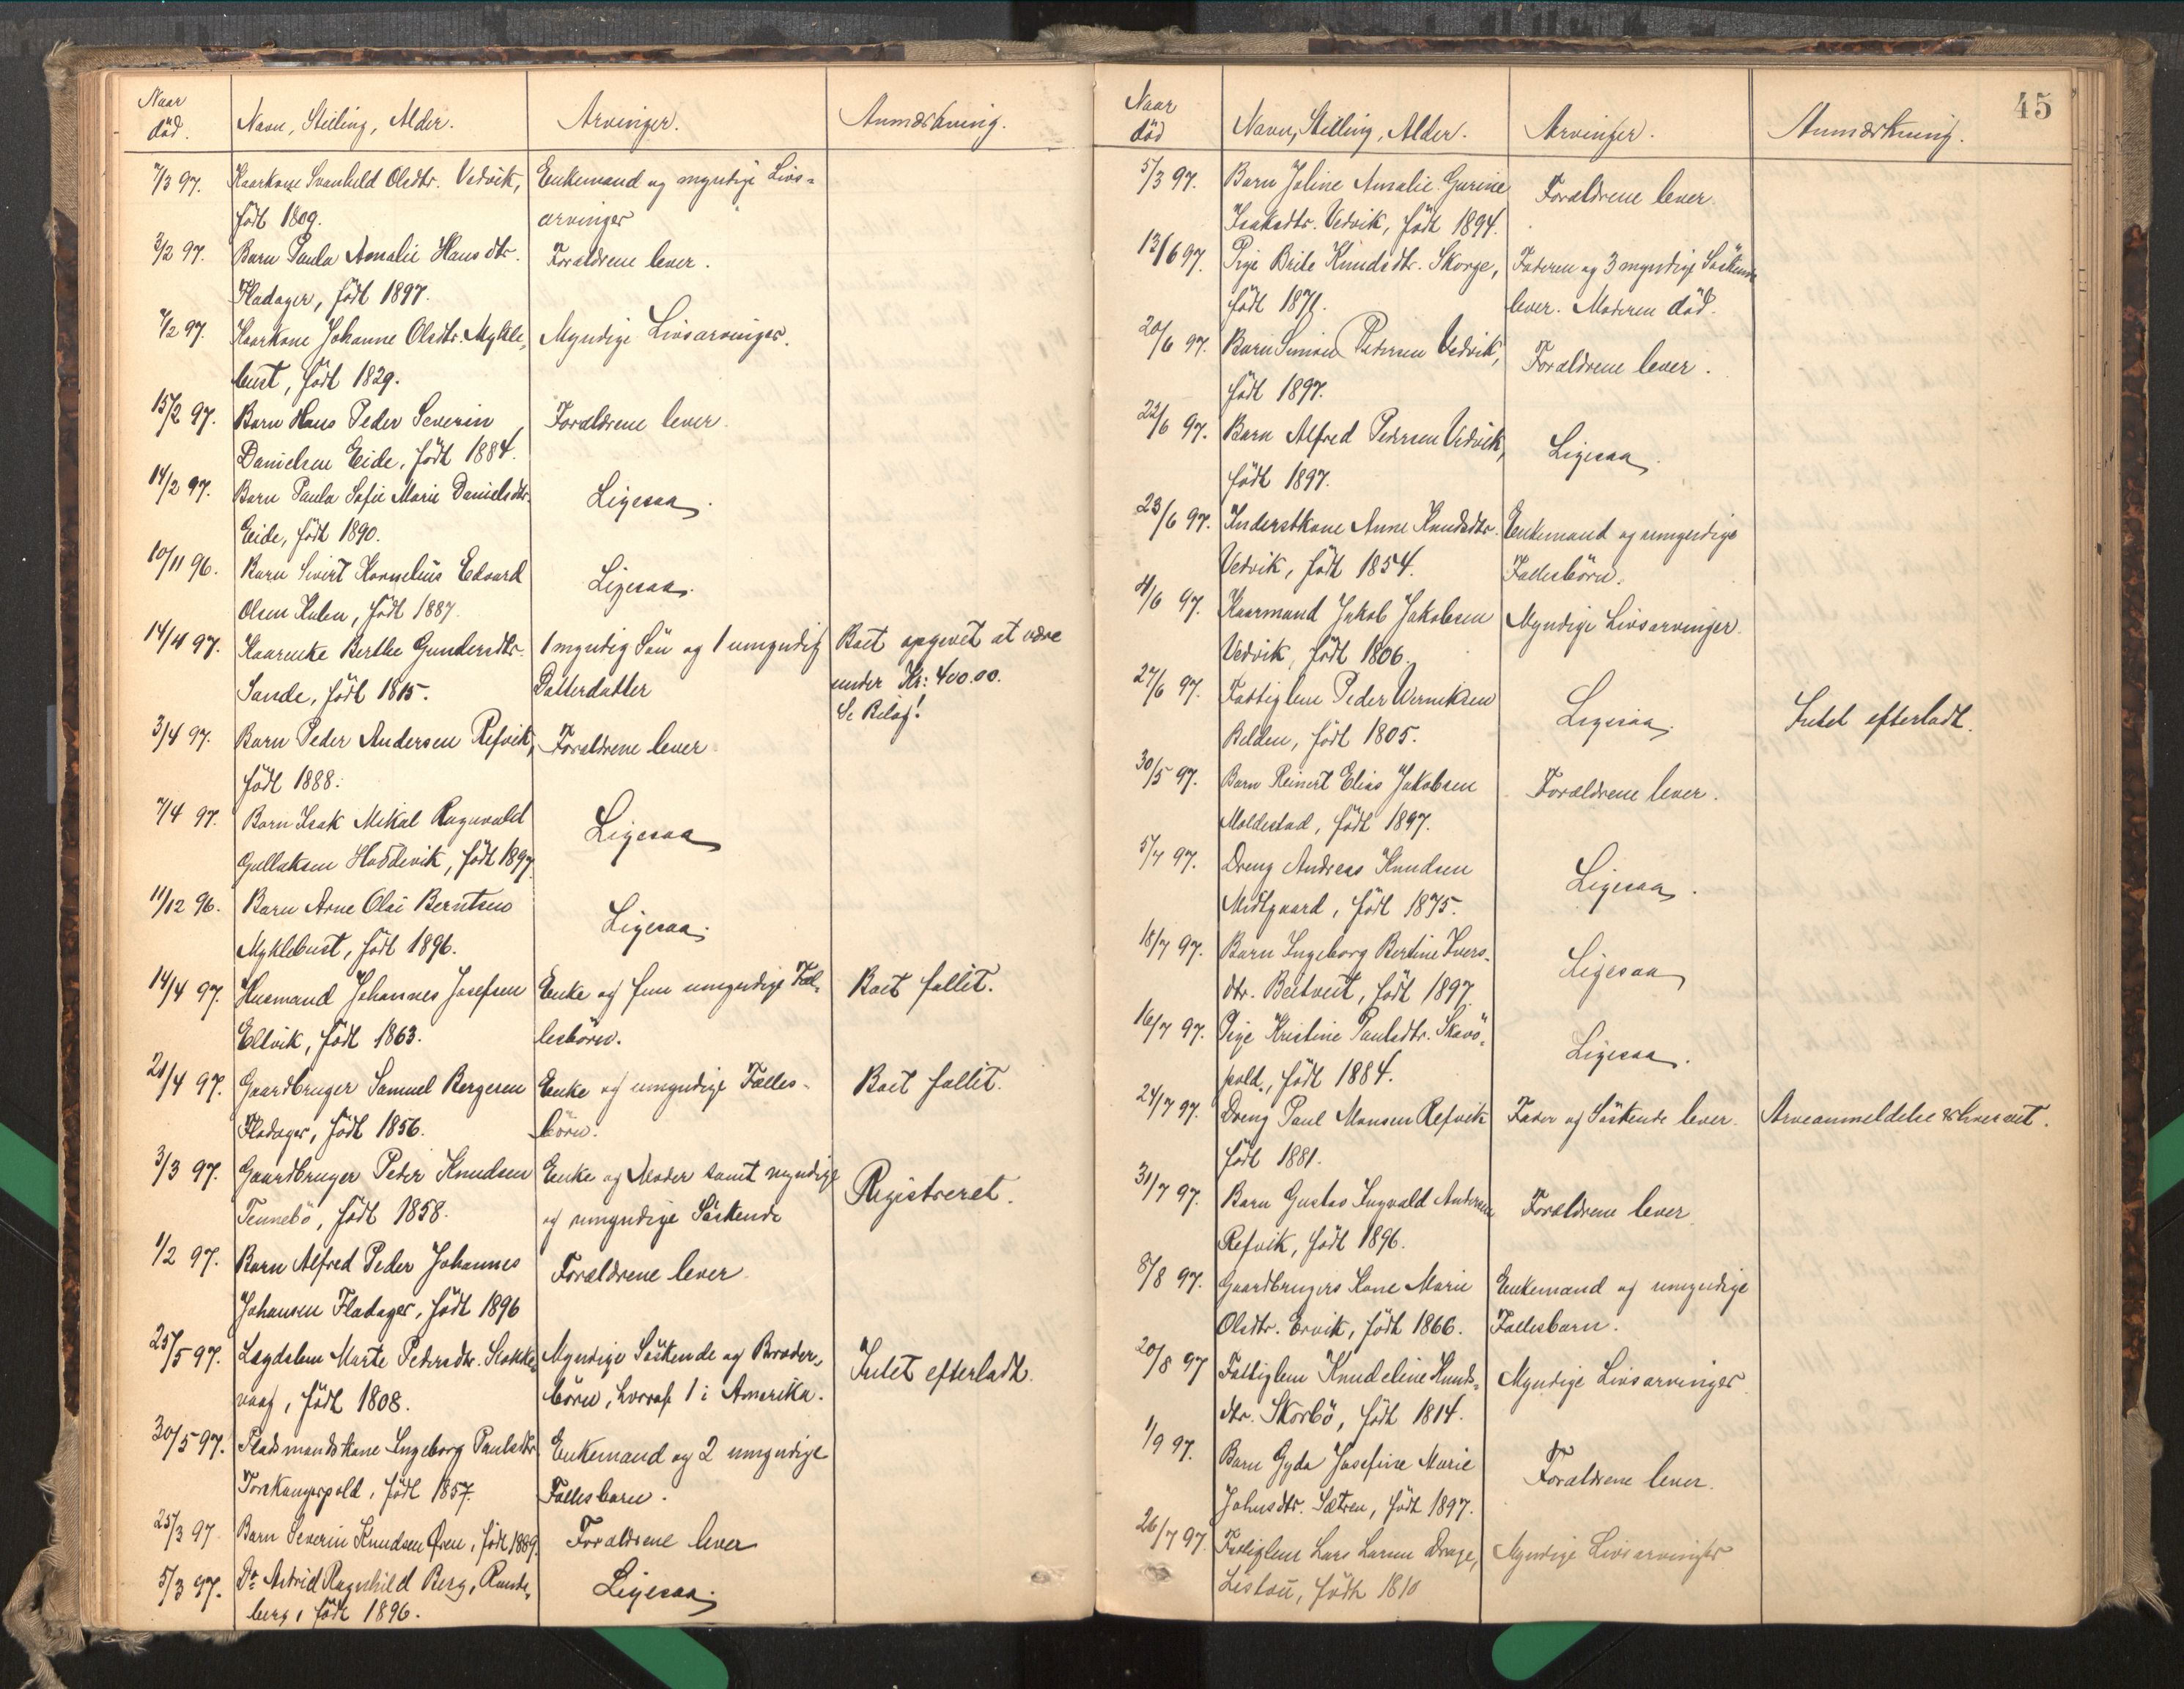 Naar død. Navn, Stilling, Alder. Arvinger. Anmærkning.
7/3 97. Kaarkone Svanhild Olsdtr. Vedvik, Enkemand og myndige Livs-
født 1809. arvinger
3/2 97. Barn Paula Amalie Hansdtr. Forældrene lever.
Fladager, født 1897.
7/2 97. Kaarkone Johanne Olsdtr. Mykle- Myndige Livsarvinger.
bust, født 1829.
15/2 97. Barn Hans Peder Severin Forældrene lever.
Danielsen Eide, født 1884.
14/2 97. Barn Paula Sofie Marie Danielsdtr. Ligesaa.
Eide, født 1890.
10/11 96. Barn Sivert Kornelius Edvard Ligesaa.
Olsen Hulen, født 1887.
14/4 97. Kaarenke Berthe Gundersdtr. 1 myndig Søn og 1 umyndig Boet opgivet at være
Sande, født 1815. Datterdatter under Kr: 400.00.
Se Bilag!
3/4 97. Barn Peder Andersen Refvik, Forældrene lever
født 1888.
7/4 97. Barn Isak Mikal Ragnvald Ligesaa
Gullaksen Hoddevik, født 1897.
11/12 96. Barn Arne Olai Berntsen Ligesaa.
Myklebust, født 1896.
14/4 97. Husmand Johannes Josefsen Enke og fem umyndige Fæl- Boet fallit.
Eltvik, født 1863. lesbørn.
21/4 97. Gaardbruger Samuel Bergesen Enke og umyndige Fælles- Boet fallit.
Fladager, født 1856. børn.
3/3 97. Gaardbruger Peder Knudsen Enke og Moder samt myndige Registreret.
Tennebø, født 1858. og umyndige Søskende
1/2 97. Barn Alfred Peder Johannes Forældrene lever
Johansen Fladager, født 1896
25/5 97. Lægdslem Marte Pedersdtr. Stokke- Myndige Søskende og Broder- Intet efterladt.
vaag, født 1808. børn, hvoraf 1 i Amerika.
30/5 97. Pladsmandskone Ingeborg Paulsdtr. Enkemand og 2 umyndige
Torskangerpold, født 1857. Fællesbarn.
25/3 97. Barn Severin Knudsen Øren, født 1889. Forældrene lever
5/3 97. Do Astrid Ragnhild Berg, Runde- Ligesaa.
berg, født 1896.
45
Naar død Navn, Stilling, Alder. Arvinger. Anmærkning.
5/3 97. Barn Joline Amalie Gurine Forældrene lever.
Isaksdtr. Vedvik, født 1894.
13/6 97. Pige Brite Knudsdtr. Skorge, Faderen og 3 myndige Søskende
født 1871. lever. Moderen død.
20/6 97. Barn Simon Pedersen Vedvik, Forældrene lever.
født 1897.
22/6 97. Barn Alfred Pedersen Vedvik, Ligesaa.
født 1897.
23/6 97. Inderstkone Anne Knudsdtr. Enkemand og umyndige
Vedvik, født 1854. Fællesbørn.
4/6 97. Kaarmand Jakob Jakobsen Myndige Livsarvinger.
Vedvik, født 1806.
27/6 97. Fattiglem Peder Werniksen Ligesaa. Intet efterladt.
Belden, født 1805.
30/5 97. Barn Reinert Elias Jakobsen Forældrene lever.
Moldestad, født 1897.
5/7 97. Dreng Andreas Knudsen Ligesaa.
Midtgaard, født 1875.
18/7 97. Barn Ingeborg Bertine Ivers- Ligesaa
dtr. Beitveit, født 1897.
16/7 97. Pige Kristine Paulsdtr. Skavø- Ligesaa.
pold, født 1884.
24/7 97. Dreng Paul Monsen Refvik Fader og Søskende lever. Arveanmeldelse
født 1881.
31/7 97. Barn Gustav Ingvald Andersen Forældrene lever
Refvik, født 1896.
8/8 97. Gaardbrugers Kone Marie Enkemand og umyndige
Olsdtr. Ervik, født 1866. Fællesbarn.
20/8 97 Fattiglem Knudeline Knuds- Myndige Livsarvinger
dtr. Skorbø, født 1814.
1/9 97. Barn Gyda Josefine Marie Forældrene lever.
Johnsdtr. Sætren, født 1897.
26/7 97. Fattiglem Lars Larsen Drage, Myndige Livsarvinger
født 1810